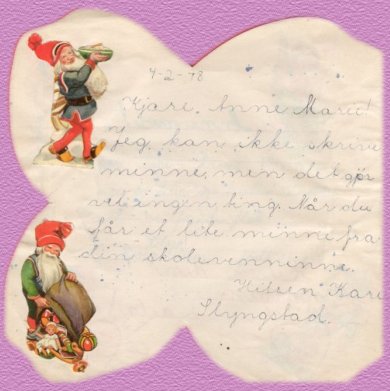 4-2-78
Kjære Anne Marie!
Jeg kan ikke skrive
minne, men det gjør
vel ingen ting. Når du
får et lite minne fra
din skolevenninne.
Hilsen Kari
Slyngstad.